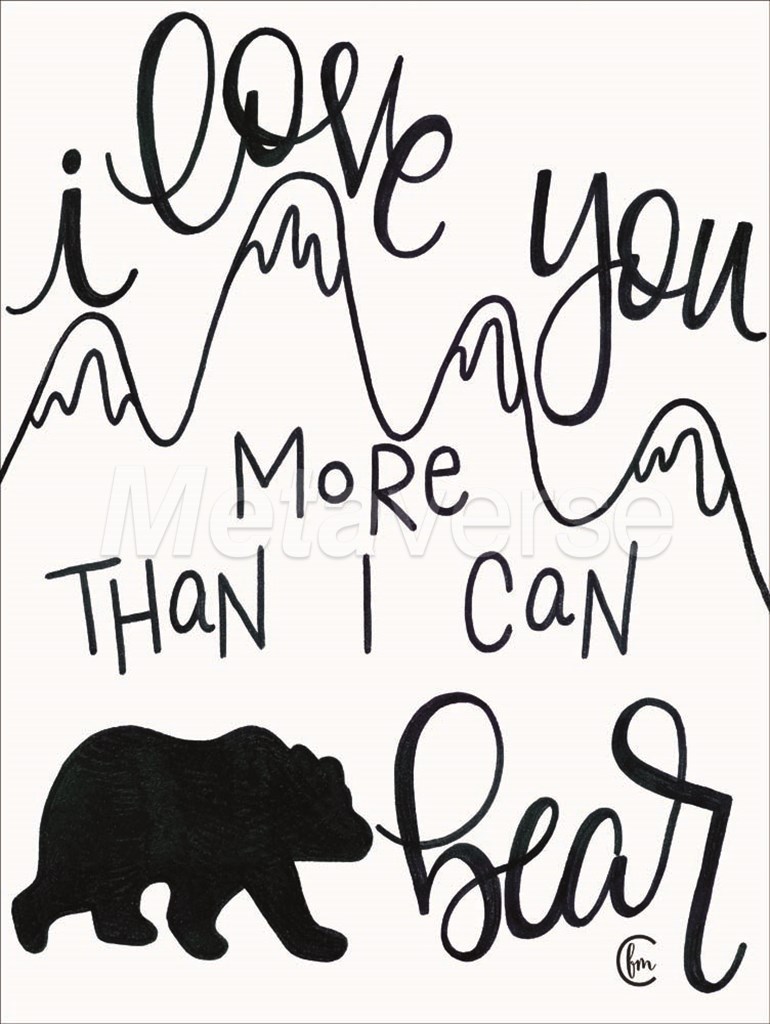 i love you
MoRe
THaN I CaN
bear
Metaverse
fm